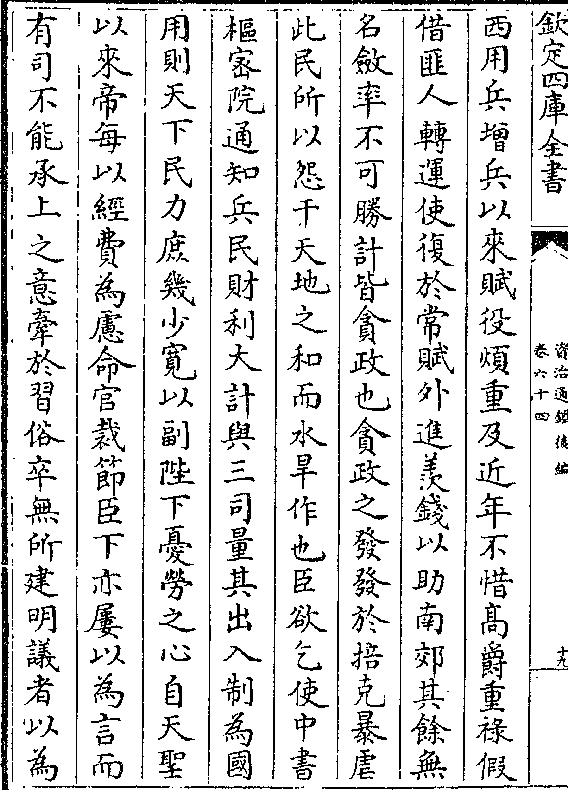 欽定四庫全書
資治通鑑後編
卷六十四
十九
西用兵增兵以來賦役煩重及近年不惜髙爵重祿假
借匪人轉運使復於常賦外進羨錢以助南郊其餘無
名斂率不可勝計皆貪政也貪政之發發於掊克暴虐
此民所以怨干天地之和而水旱作也臣欲乞使中書
樞宻院通知兵民財利大計與三司量其出入制為國
用則天下民力庶幾少寛以副陛下憂勞之心自天聖
以來帝每以經費為慮命官裁節臣下亦屢以為言而
有司不能承上之意牽於習俗卒無所建明議者以為